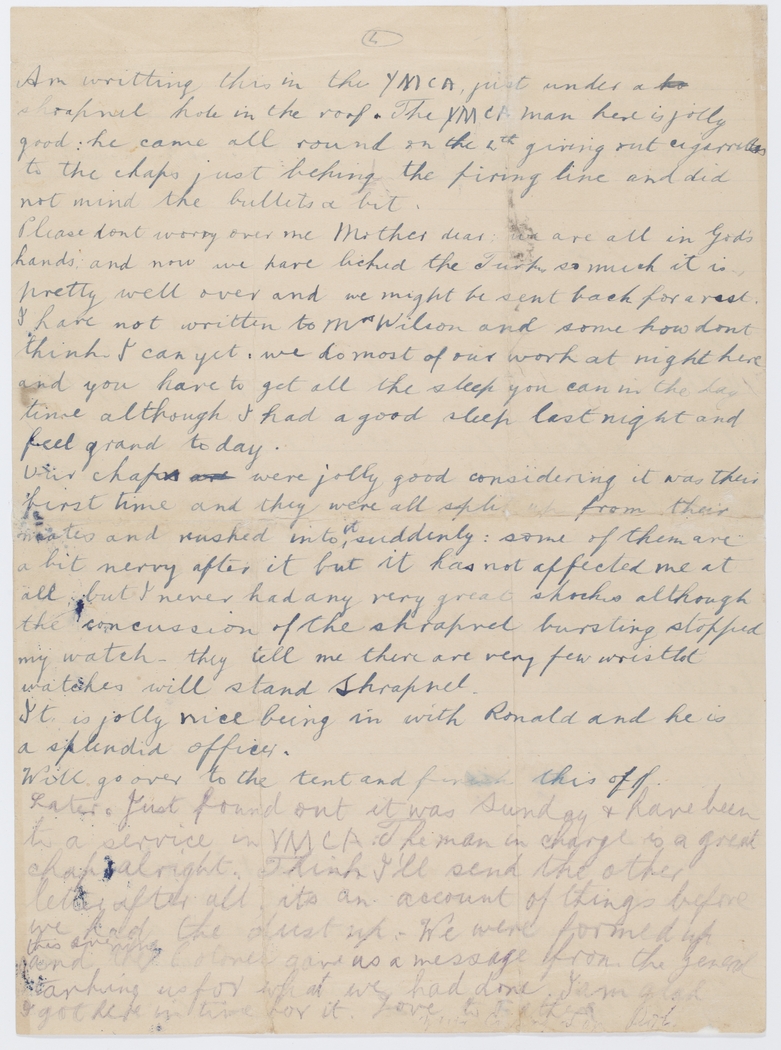 Am writting this in the YMCA, just under a to
shrapnel hole in the roof. The YMCA man here is jolly
good: he came all round on the 4th giving out cigarrettes
to the chaps just behing the firing line and did
not mind the bullets a bit.
Please dont worry over me Mother dear: we are all in God's
hands: and now we have licked the Turks so much it is
pretty well over and we might be sent back for a rest.
I have not written to Mrs Wilson and some how dont
think I can yet. we do most of our work at night here
and you have to get all the sleep you can in the day
time although I had a good sleep last night and
feel grand today.
Our chaps are were jolly good considering it was their
first time and they were all split up from their
mates and rushed into it suddenly: some of them are
a bit nervy after it but it has not affected me at
all but I never had any very great shocks although
the concussion of the shrapnel bursting stopped
my watch - they tell me there are very few wristlet
watches will stand shrapnel.
It is jolly nice being in with Ronald and he is
a splendid officer.
Will go over to the tent and finish this off.
Later. Just found out it was Sunday & have been
to a service in YMCA. The man in charge is a great
chap alright. Think I'll send the other
letter after all its an account of things before
we had the dust up. We were formed up
this
and the Colonel gave us a message from the General
thanking us for what we had done. I am glad
I got here in time for it. Love to